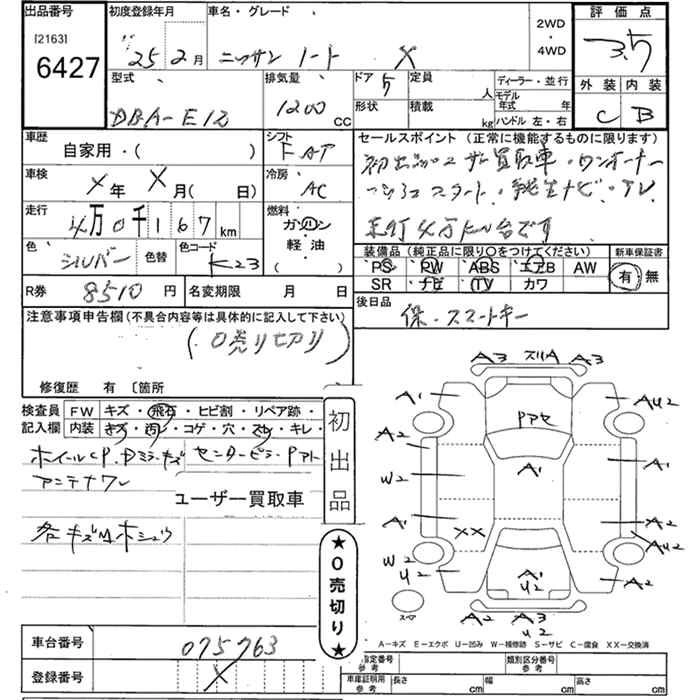 出品番号 初度登録年月 車名・グレード 2WD ・ 4WD 評価点
[2163]
6427
25 2月 ニッサン ノート X 3.5
型式 排気量 ドア 5 定員 人 ディーラー・並行 外装 内装
DBA-E12 1200 CC 形状 積載 kg モデル年式 年 ハンドル 左・右 C B
車歴 自家用・( ) シフト FAT セールスポイント (正常に機能するものに限ります)
初出品 ユーザー買取車・ワンオーナー
車検 X年 X月( 日) 冷房 AC
プッシュスタート・純正ナビ・TV
走行 4万0千167km 燃料 ガソリン 軽油 ( )
走行4万キロ台です
色 シルバー 色替 色コード K23
装備品 (純正品に限り〇をつけてください) 新車保証書
PS PW ABS エアB AW 有 無
SR ナビ TV カワ
R券 8510円 名変期限 月 日 後日品
保・スマートキー
注意事項申告欄 (不具合内容等は具体的に記入して下さい)
(0売り切り)
修復歴 有 〔箇所
検査員記入欄 FW キズ・飛石・ヒビ割・リペア跡・
内装 キズ・汚レ・コゲ・穴・スレ・キレ・
初出品
ホイールCP.Dミラーキズ センターピラーPアト
アンテナワレ
ユーザー買取車
各キズMホシュウ
★0売切り★
A3 スリA A3
A1 Pアセ AU2
A2 A1 A1
W2
A1 XX A2
AU2
W2
U2 A1 U2 A2
スペア A2 A3 A2
U2
A—キズ E—エクボ U—凹み W—補修跡 S—サビ C—腐食 XX—交換済
車台番号 075763
登録番号 X
指定番号 参考 類別区分番号 参考
車庫証明用 参考 長さ cm 幅 cm 高さ cm